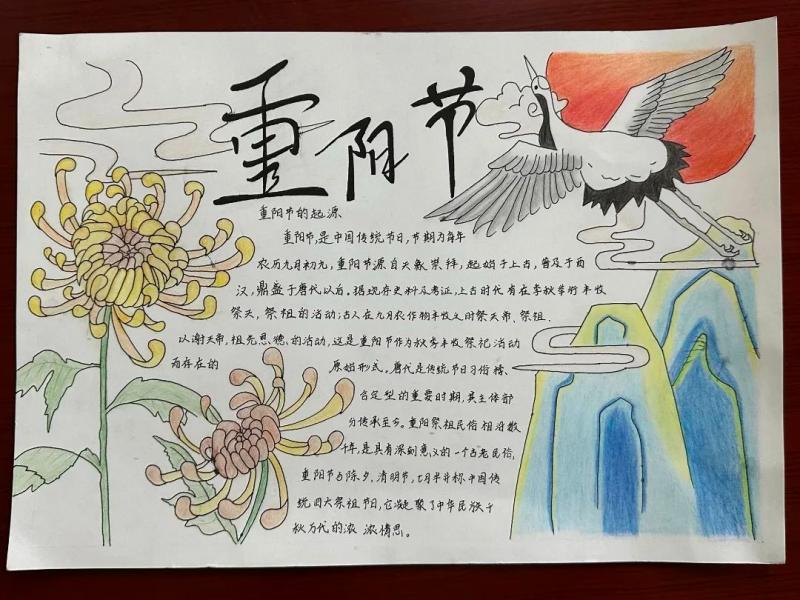 重阳节
重阳节的起源
重阳节,是中国传统节日,节期为每年
农历九月初九,重阳节源自天象崇拜,起始于上古,普及于西
汉,鼎盛于唐代以后。据现存史料及考证,上古时代有在季秋举行丰收
祭天,祭祖的活动;古人在九月农作物丰收之时祭天帝、祭祖.
以谢天帝,祖先恩德的活动,这是重阳节作为秋季丰收祭祀活动
而存在的 原始形式。唐代是传统节日习俗糅、
合定型的重要时期,其主体部
分传承至今。重阳祭祖民俗相沿数
千年,是具有深刻意义的一个古老民俗,
重阳节与除夕,清明节,七月半并称中国传
统四大祭祖节日,它凝聚了中华民族千
秋万代的浓 浓情思。